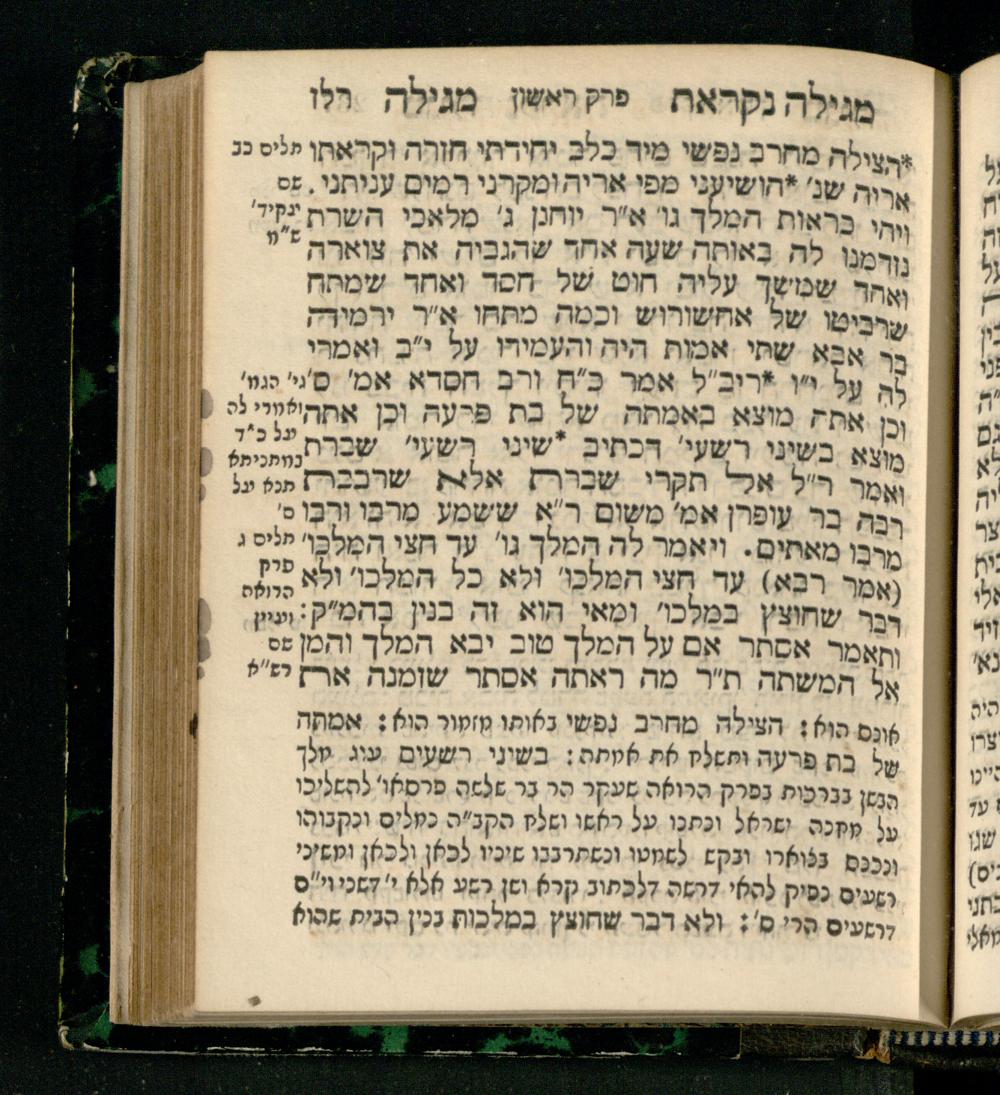 מגילה נקראת פרק ראשון מגילה רלז
*הצילה מחרב נפשי מיד כלב יחידתי חזרה וקראתו
אריה שנ׳ *הושיעני מפי אריה ומקרני רמים עניתני.
ויהי כראות המלך גו׳ א״ר יוחנן ג׳ מלאכי השרת
נזדמנו לה באותה שעה אחד שהגביה את צוארה
ואחד שמשך עליה חוט של חסד ואחד שמתח
שרביטו של אחשורוש וכמה מתחו א״ר ירמיה
בר אבא שתי אמות היה והעמידו על י״ב ואמרי
לה על י״ו *ריב״ל אמר כ״ח ורב חסדא אמ׳ ס׳
וכן אתה מוצא באמתה של בת פרעה וכן אתה
מוצא בשיני רשעי׳ דכתיב *שיני רשעי׳ שברת
ואמר ר״ל אל תקרי שברת אלא שרבבת
רבה בר עופרן אמ׳ משום ר״א ששמע מרבו ורבו
מרבו מאתים. ויאמר לה המלך גו׳ עד חצי המלכו׳
(אמר רבא) עד חצי המלכו׳ ולא כל המלכו׳ ולא
דבר שחוצץ במלכו׳ ומאי הוא זה בנין בהמ״ק:
ותאמר אסתר אם על המלך טוב יבא המלך והמן
אל המשתה ת״ר מה ראתה אסתר שזמנה את
תליס כב
שס
ינקיד׳
ש״מ
גי׳ הגמ׳
ואמרי לה
יגל כ״ד
במתניתא
תנא יגל
ס׳
תליס ג
פרק
הרואה
ועיין
שס
רש״א
אונס הוא: הצילה מחרב נפשי באותו מזמור הוא: אמתה
של בת פרעה ותשלח את אמתה: בשיני רשעים עוג מלך
הבשן בברכות בפרק הרואה שעקר הר בר שלשה פרסאו׳ להשליכו
על מחנה ישראל ונתנו על ראשו ושלח הקב״ה נמלים ונקבוהו
ונכנס בצוארו ובקש לשמטו ונשתרבבו שיניו לכאן ולכאן ומשיני
רשעים נפיק להאי דרשה דלכתוב קרא ושן רשע אלא י׳ דשני וי״ם
דרשעים הרי ס׳: ולא דבר שחוצץ במלכות בנין הבית שהוא